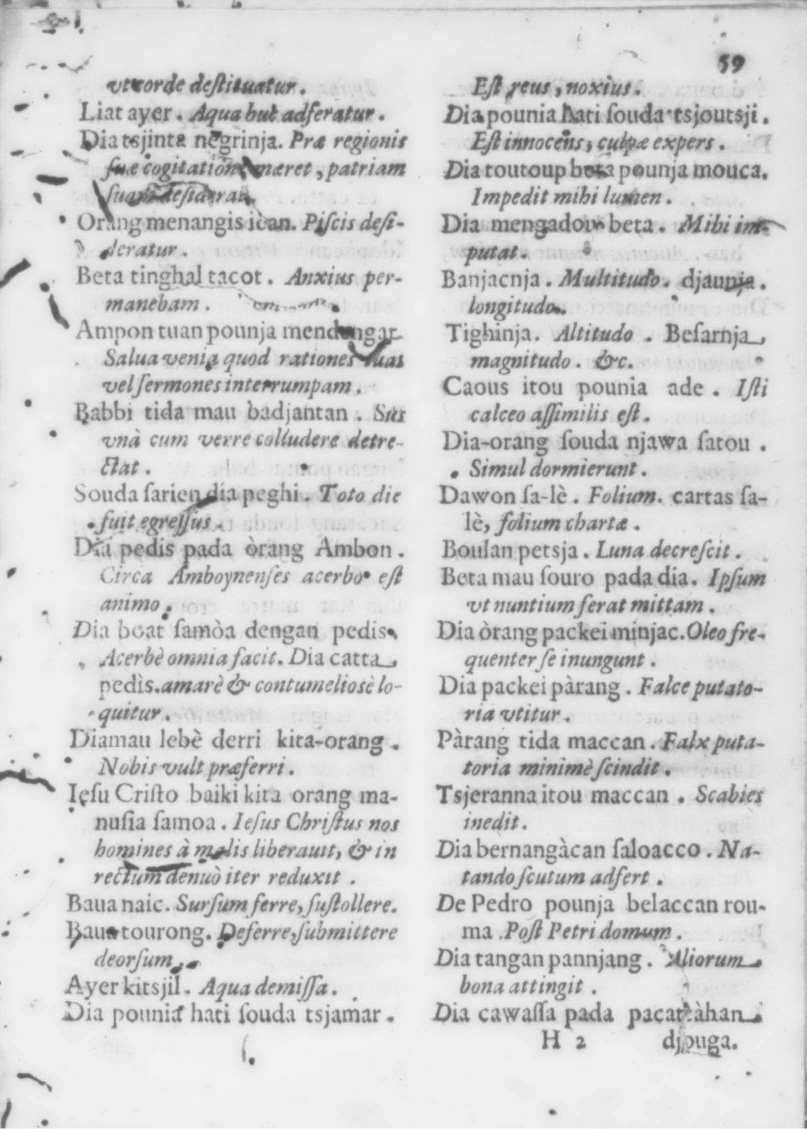 59
vt corde deſtituatur.
Liat ayer. Aqua huc adferatur.
Dia tsjinta negrinja. Præ regionis
ſuæ cogitatione mæret, patriam
ſuam deſiderat.
Orang menangis ican. Piſcis deſi-
deratur.
Beta tinghal tacot. Anxius per-
manebam.
Ampon tuan pounja mendengar
Salua venia quod rationes tuas
vel ſermones interrumpam.
Babbi tida mau badjantan. Sus
vnà cum verre colludere detre-
ctat.
Souda ſarien dia peghi. Toto die
fuit egreſſus.
Dia pedis pada òrang Ambon.
Circa Amboynenſes acerbo eſt
animo.
Dia boat ſamòa dengan pedis.
Acerbè omnia facit. Dia catta
pedìs. amarè & contumelioſè lo-
quitur.
Dia mau lebè derri kita-orang.
Nobis vult præferri.
Ieſu Criſto baiki kita orang ma-
nuſia ſamoa. Ieſus Chriſtus nos
homines à malis liberauit, & in
rectum denuò iter reduxit.
Baua naic. Surſum ferre, ſuſtollere.
Baua tourong. Deferre, ſubmittere
deorſum.
Ayer kitsjil. Aqua demiſſa.
Dia pounia hati ſouda tsjamar.
Eſt reus, noxius.
Dia pounia hati ſouda tsjoutsji.
Eſt innocens, culpæ expers.
Dia toutoup beta pounja mouca.
Impedit mihi lumen.
Dia mengadou beta. Mihi im-
putat.
Banjacnja. Multitudo. djaunja.
longitudo.
Tighinja. Altitudo. Beſarnja,
magnitudo. &c.
Caous itou pounia ade. Iſti
calceo aſſimilis eſt.
Dia-orang ſouda njawa ſatou.
Simul dormierunt.
Dawon ſa-lè. Folium. cartas ſa-
lè, folium chartæ.
Boulan petsja. Luna decreſcit.
Beta mau ſouro pada dia. Ipſum
vt nuntium ferat mittam.
Dia òrang packei minjac. Oleo fre-
quenter ſe inungunt.
Dia packei pàrang. Falce putato-
ria vtitur.
Pàrang tida maccan. Falx puta-
toria minimè ſcindit.
Tsjeranna itou maccan. Scabies
inedit.
Dia bernangàcan ſaloacco. Na-
tando ſcutum adfert.
De Pedro pounja belaccan rou-
ma. Poſt Petri domum.
Dia tangan pannjang. Aliorum
bona attingit.
Dia cawaſſa pada pacattàhan
H 2 djouga.